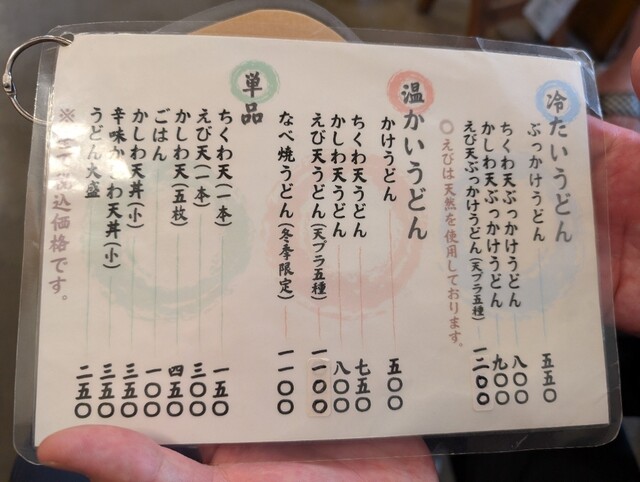 冷たいうどん
ぶっかけうどん 五五〇
ちくわ天ぶっかけうどん 八〇〇
かしわ天ぶっかけうどん 九〇〇
えび天ぶっかけうどん(天プラ五種) 一二〇〇
〇えびは天然を使用しております。
温かいうどん
かけうどん 五〇〇
ちくわ天うどん 七五〇
かしわ天うどん 八〇〇
えび天うどん(天プラ五種) 一一〇〇
なべ焼うどん(冬季限定) 一一〇〇
単品
ちくわ天(一本) 一五〇
えび天(一本) 三〇〇
かしわ天(五枚) 四五〇
ごはん 一〇〇
かしわ天丼(小) 三五〇
辛味かしわ天丼(小) 三五〇
うどん大盛 二五〇
※全て税込価格です。